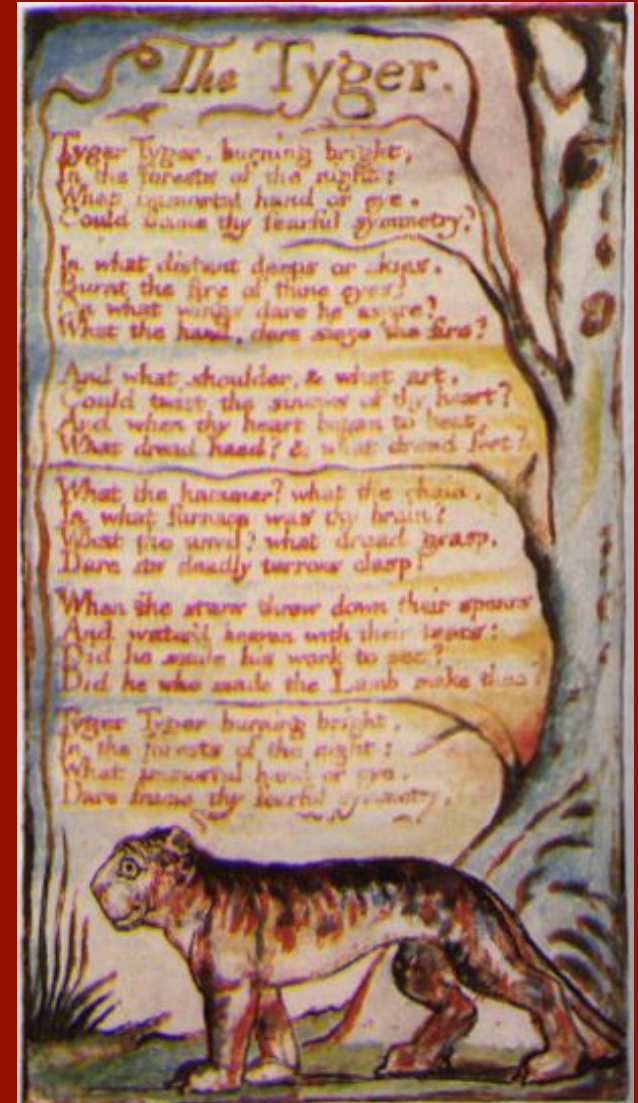 The Tyger.
Tyger Tyger, burning bright,
In the forests of the night:
What immortal hand or eye.
Could frame thy fearful symmetry?
In what distant deeps or skies.
Burnt the fire of thine eyes?
On what wings dare he aspire?
What the hand, dare sieze the fire?
And what shoulder, & what art,
Could twist the sinews of thy heart?
And when thy heart began to beat,
What dread hand? & what dread feet?
What the hammer? what the chain,
In what furnace was thy brain?
What the anvil? what dread grasp,
Dare its deadly terrors clasp!
When the stars threw down their spears
And water'd heaven with their tears:
Did he smile his work to see?
Did he who made the Lamb make thee?
Tyger Tyger burning bright,
In the forests of the night:
What immortal hand or eye,
Dare frame thy fearful symmetry?